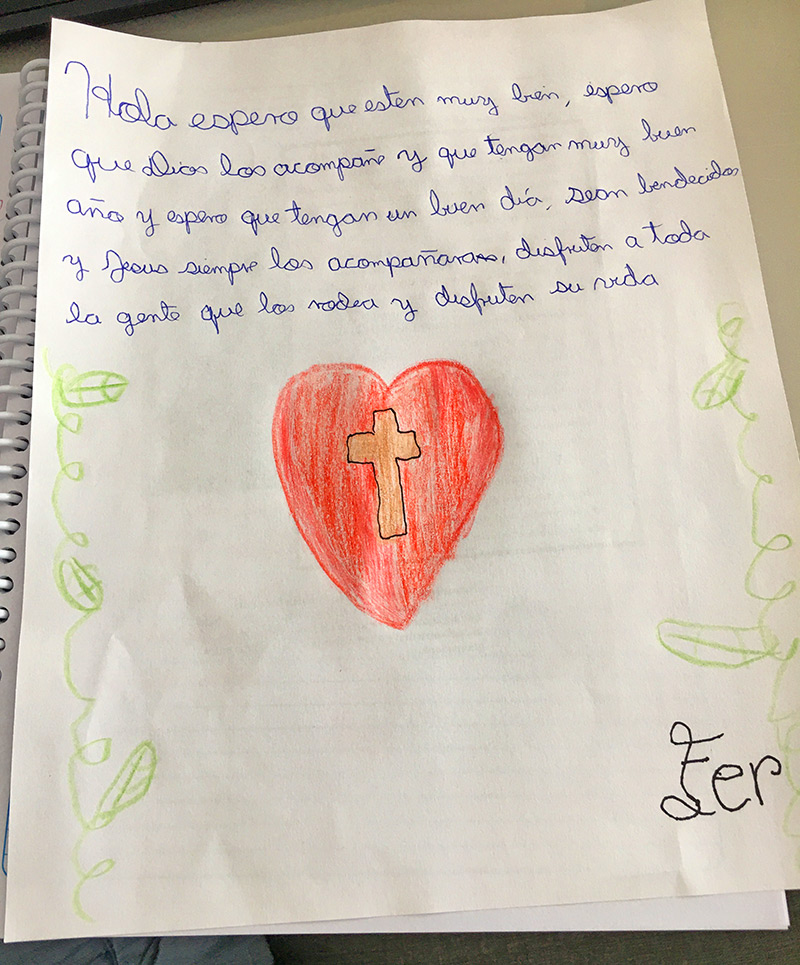 Hola espero que esten muy bien, espero
que Dios los acompañe y que tengan muy buen
año y espero que tengan un buen día, sean bendecidos
y Jesus siempre los acompañara, disfruten a toda
la gente que los rodea y disfruten su vida
Fer